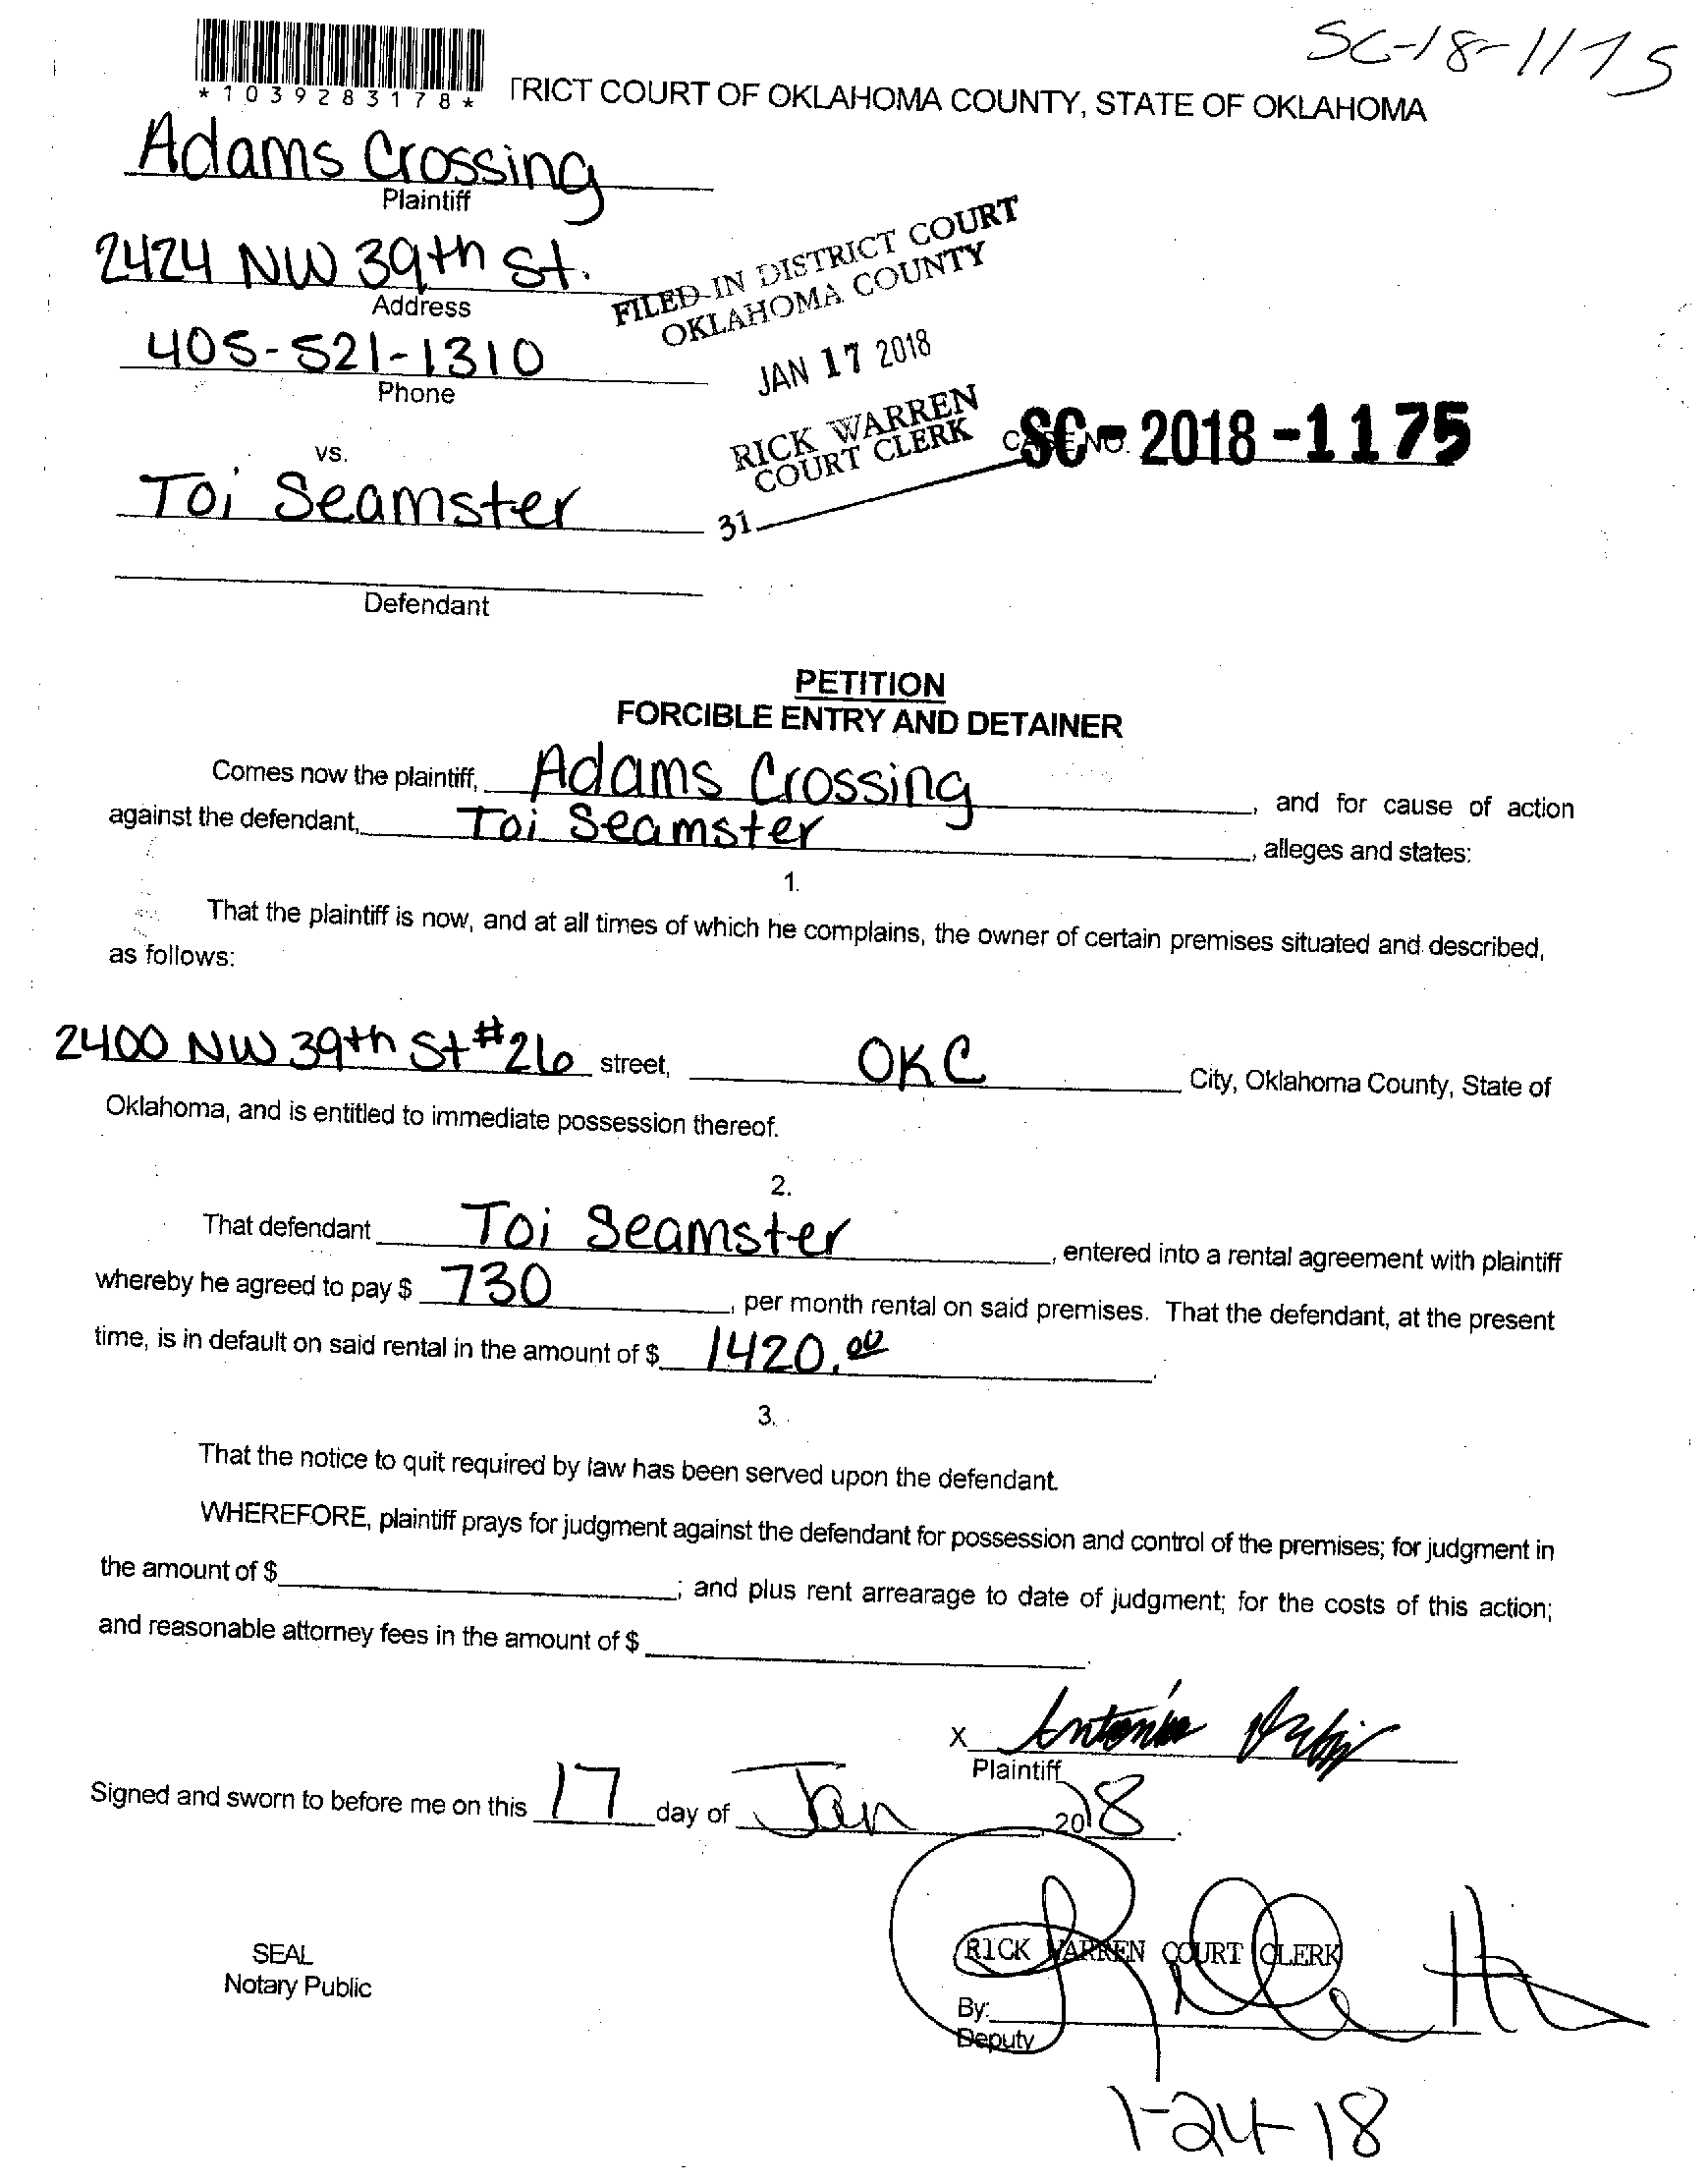 SC-18-1175
*1039283178*
TRICT COURT OF OKLAHOMA COUNTY, STATE OF OKLAHOMA
Adams Crossing
Plaintiff
2424 NW 39th St.
Address
405-521-1310
Phone
FILED IN DISTRICT COURT
OKLAHOMA COUNTY
JAN 17 2018
RICK WARREN
COURT CLERK
31
CASE NO. SC-2018-1175
vs.
Toi Seamster
Defendant
PETITION
FORCIBLE ENTRY AND DETAINER
Comes now the plaintiff, Adams Crossing, and for cause of action
against the defendant, Toi Seamster, alleges and states:
1.
That the plaintiff is now, and at all times of which he complains, the owner of certain premises situated and described,
as follows:
2400 NW 39th St #26 street, OKC City, Oklahoma County, State of
Oklahoma, and is entitled to immediate possession thereof.
2.
That defendant Toi Seamster, entered into a rental agreement with plaintiff
whereby he agreed to pay $ 730, per month rental on said premises. That the defendant, at the present
time, is in default on said rental in the amount of $ 1420.00.
3.
That the notice to quit required by law has been served upon the defendant.
WHEREFORE, plaintiff prays for judgment against the defendant for possession and control of the premises; for judgment in
the amount of $ ; and plus rent arrearage to date of judgment; for the costs of this action;
and reasonable attorney fees in the amount of $ .
X Antonia
Plaintiff
Signed and sworn to before me on this 17 day of Jan, 2018.
SEAL
Notary Public
RICK WARREN COURT CLERK
By:
Deputy
1-24-18